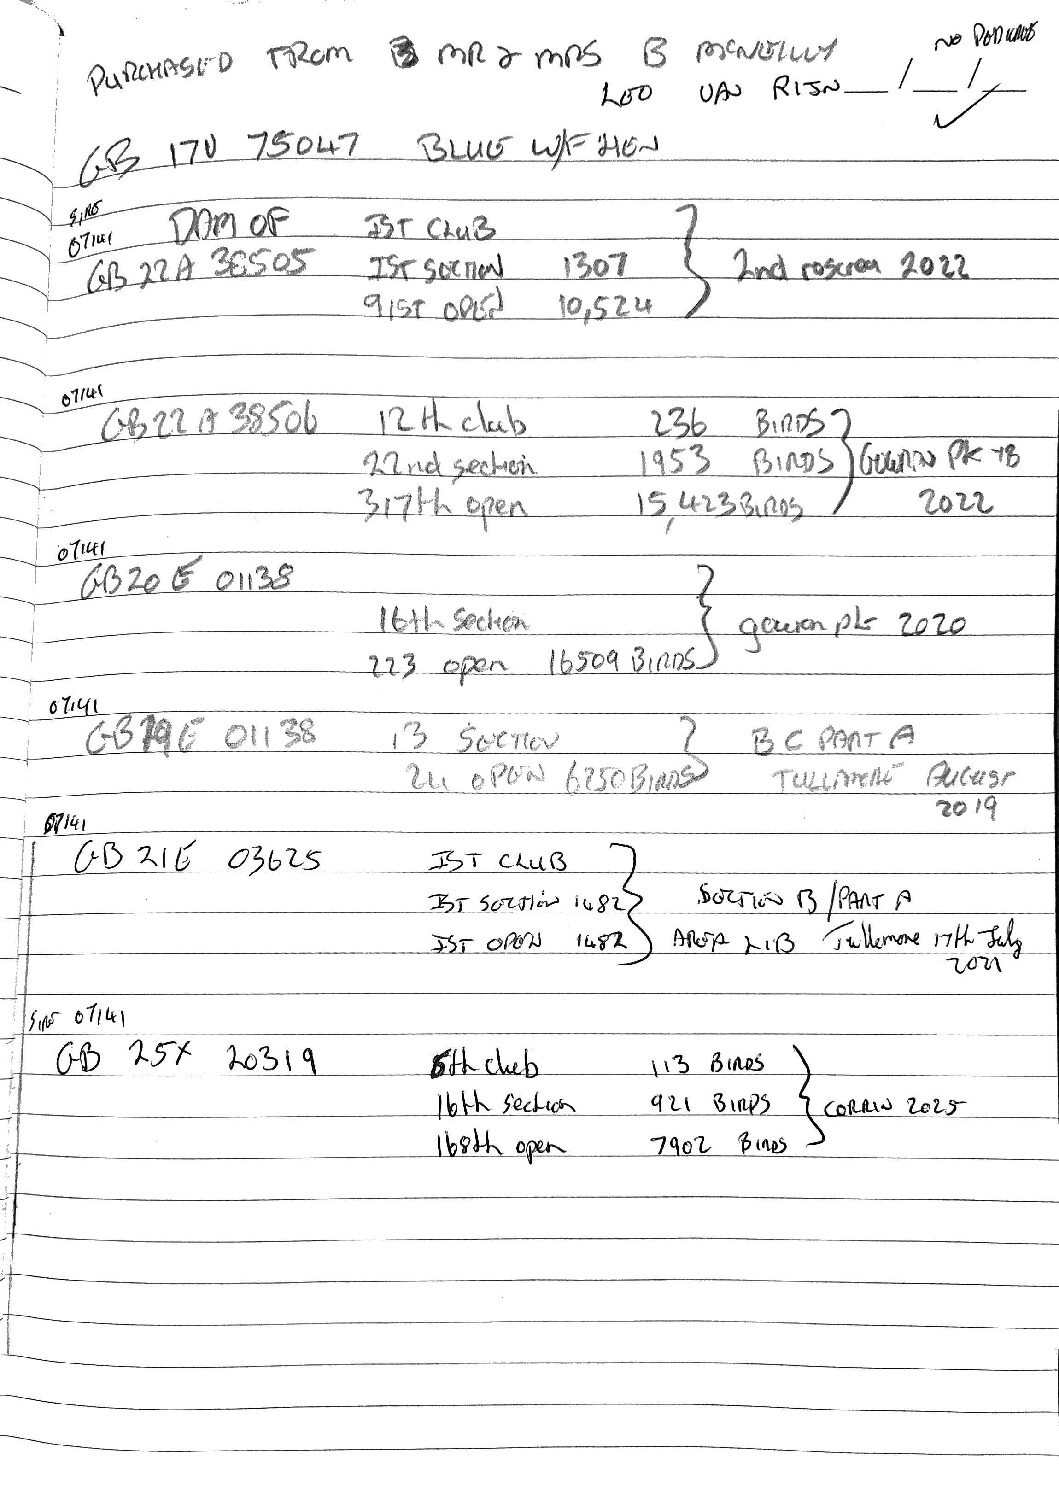 NO PEDIGREE
PURCHASED FROM MR & MRS B McNEILLY
LEO VAN RIJN
GB 17V 75047 BLUE W/F HEN
SIRE
07141 DAM OF 1ST CLUB
GB 22 A 38505 1ST SECTION 1307 2nd roscrea 2022
91ST OPEN 10,524
07141
GB 22 A 38506 12th club 236 BIRDS
22nd section 1953 BIRDS GOWRAN PK YB
317th open 15,423 BIRDS 2022
07141
GB 20 E 01138
16th section gowran pk 2020
223 open 16509 BIRDS
07141
GB 19 E 01138 13 SECTION B C PART A
24 OPEN 6250 BIRDS TULLAMORE AUGUST
2019
07141
GB 21E 03625 1ST CLUB
1ST SECTION 1482 SECTION B/PART A
1ST OPEN 1482 AREA LIB Tullemore 17th July
2021
SIRE 07141
GB 25X 20319 6th club 113 BIRDS
16th section 921 BIRDS CORRIN 2025
168th open 7902 BIRDS